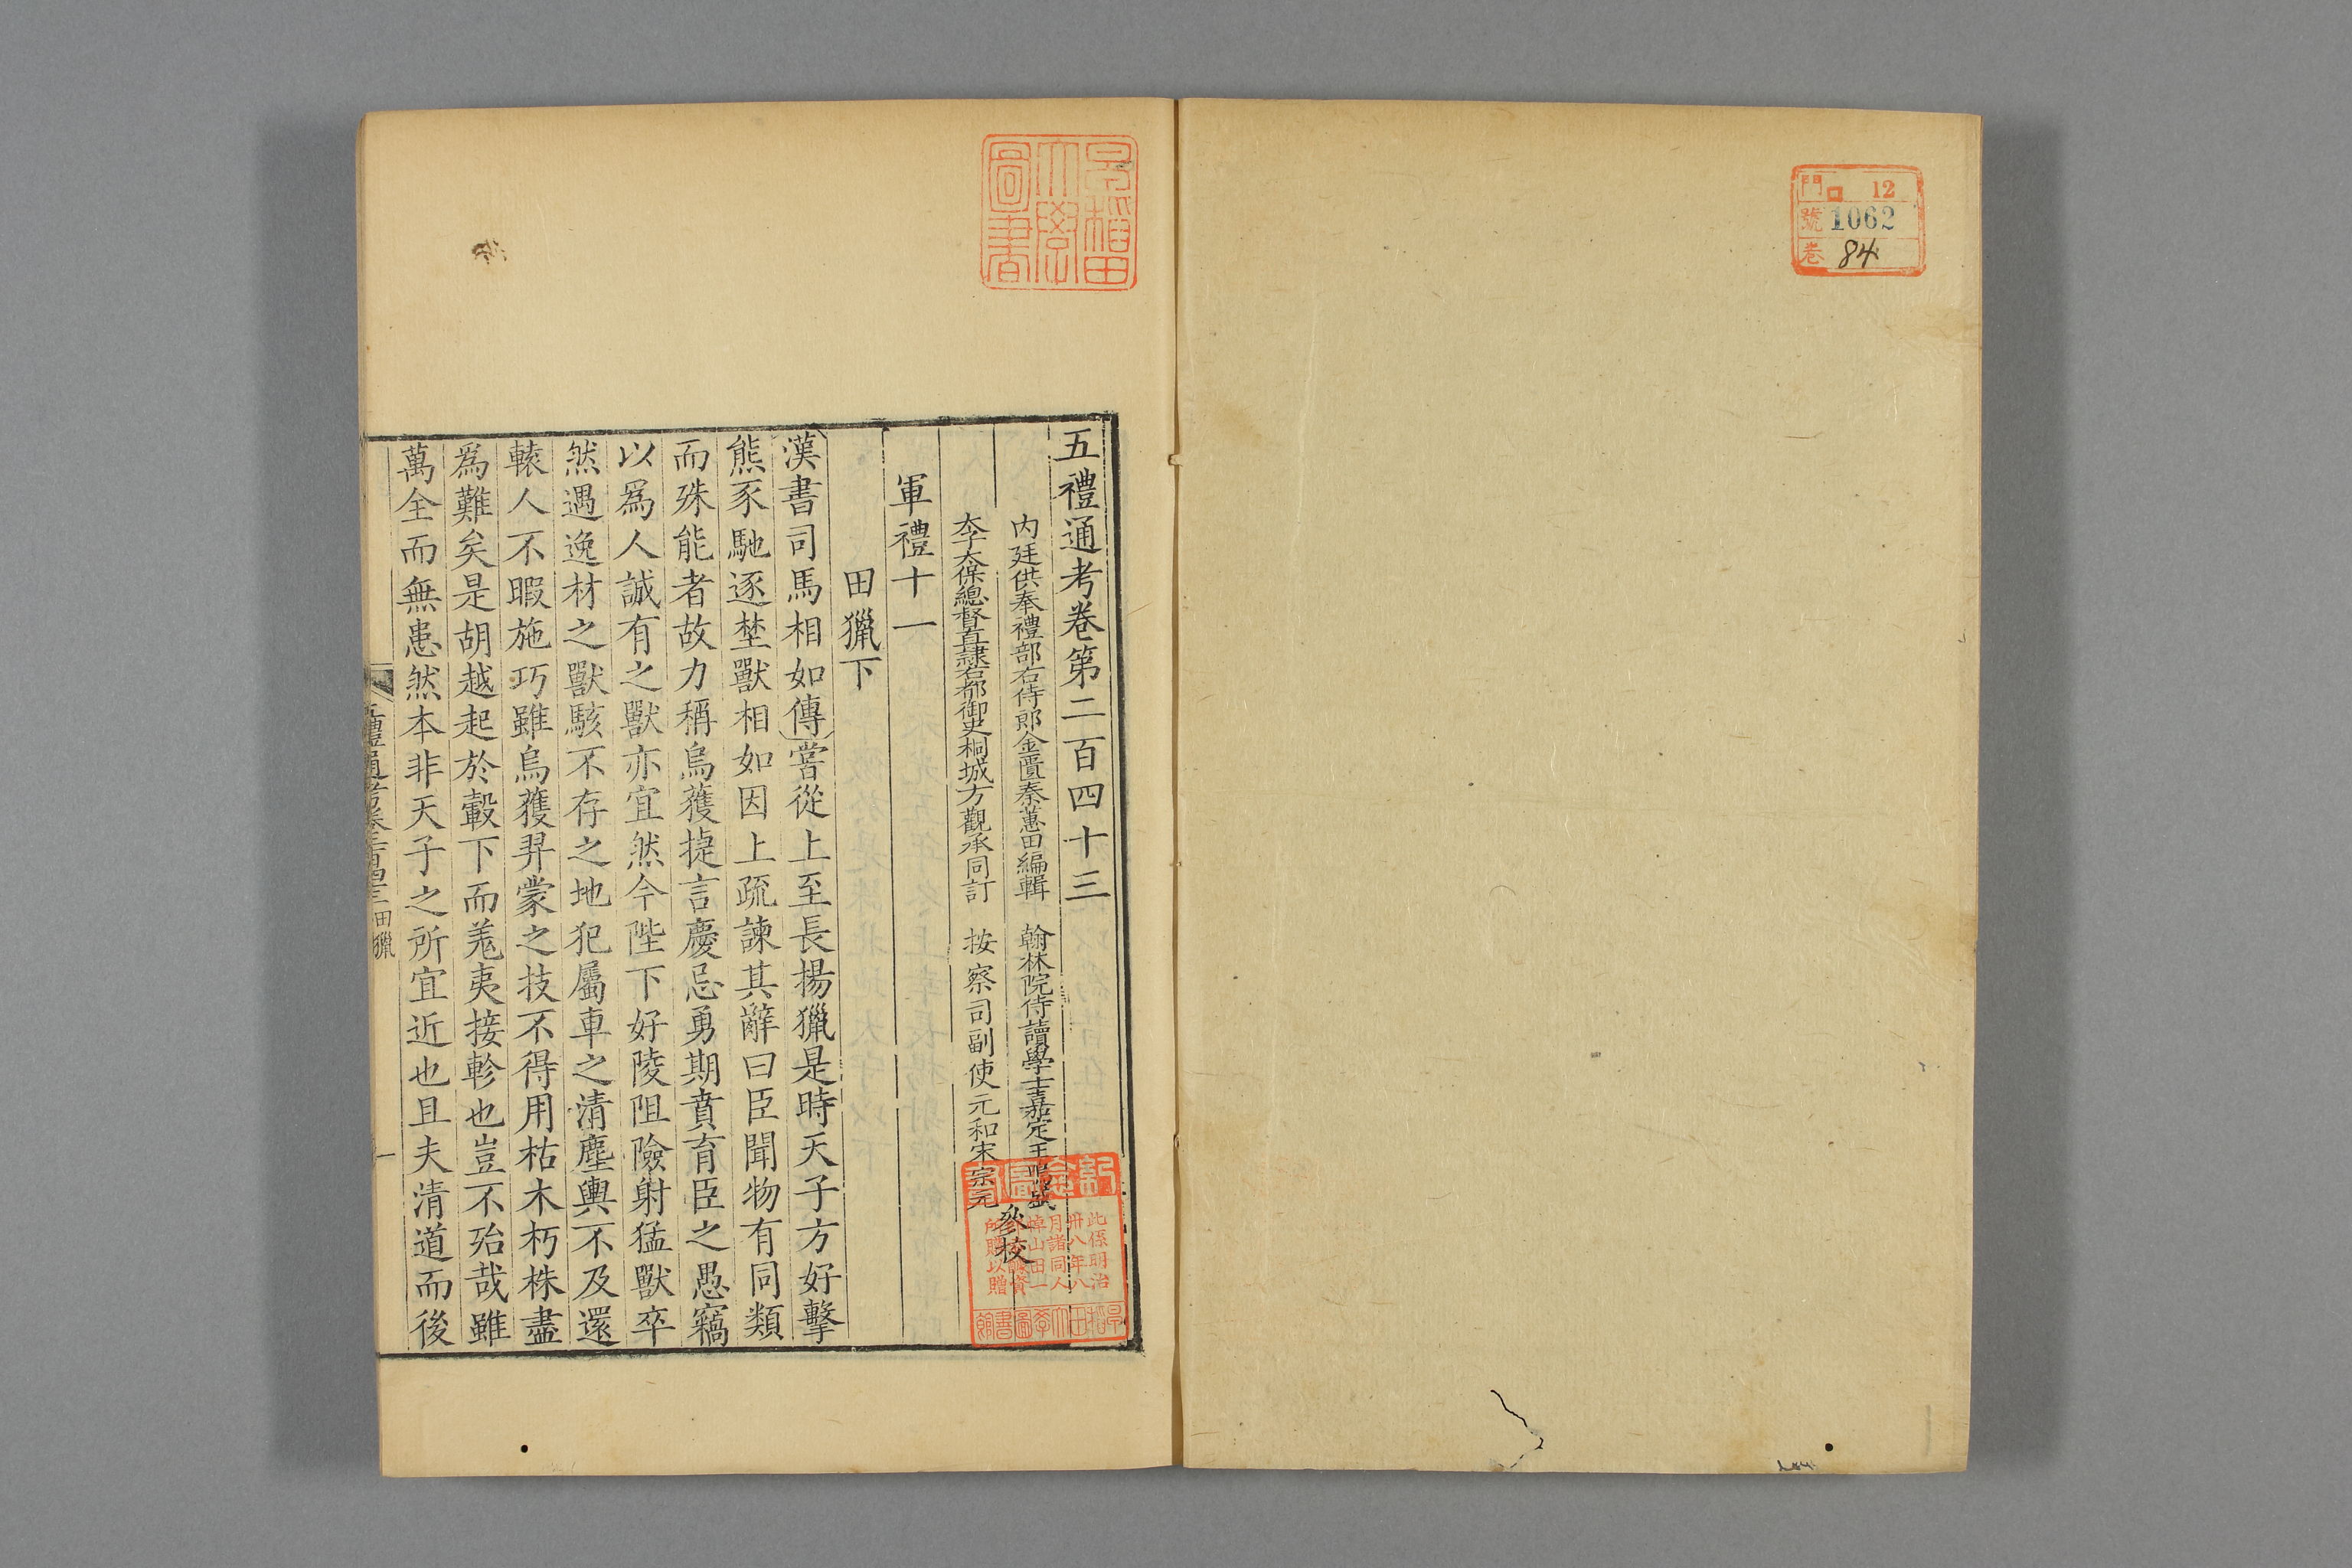 門 12
號 1062
卷 84
早稻田
大學
圖書
五禮通考卷第二百四十三
内廷供奉禮部右侍郎金匱秦蕙田編輯 翰林院侍讀學士嘉定王鳴盛
太子太保總督直隸右都御史桐城方觀承同訂 按察司副使元和宋宗元
參校
軍禮十一
田獵下
漢書司馬相如傳嘗從上至長揚獵是時天子方好擊
熊豕馳逐埜獸相如因上疏諫其辭曰臣聞物有同類
而殊能者故力稱烏獲捷言慶忌勇期賁育臣之愚竊
以爲人誠有之獸亦宜然今陛下好陵阻險射猛獸卒
然遇逸材之獸駭不存之地犯屬車之清塵輿不及還
轅人不暇施巧雖烏獲羿蒙之技不得用枯木朽株盡
爲難矣是胡越起於轂下而羗夷接軫也豈不殆哉雖
萬全而無患然本非天子之所宜近也且夫清道而後
五禮通考卷二百四十三 田獵
一
此係明治
卅八年八
月諸同人
所購以贈
早稻田大學圖書館